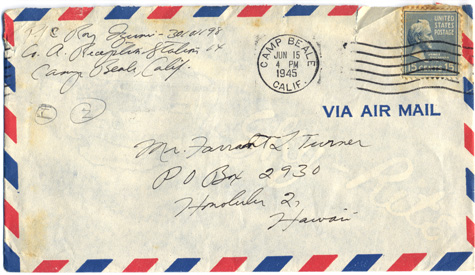 Roy
Co. A. Reception Station
Camp Beale Calif.
CAMP BEALE
JUN 15
4 PM
1945
CALIF.
UNITED STATES
POSTAGE
15 CENTS 15
VIA AIR MAIL
Mr. Farrant L. Turner
P O Box 2930
Honolulu 2,
Hawaii